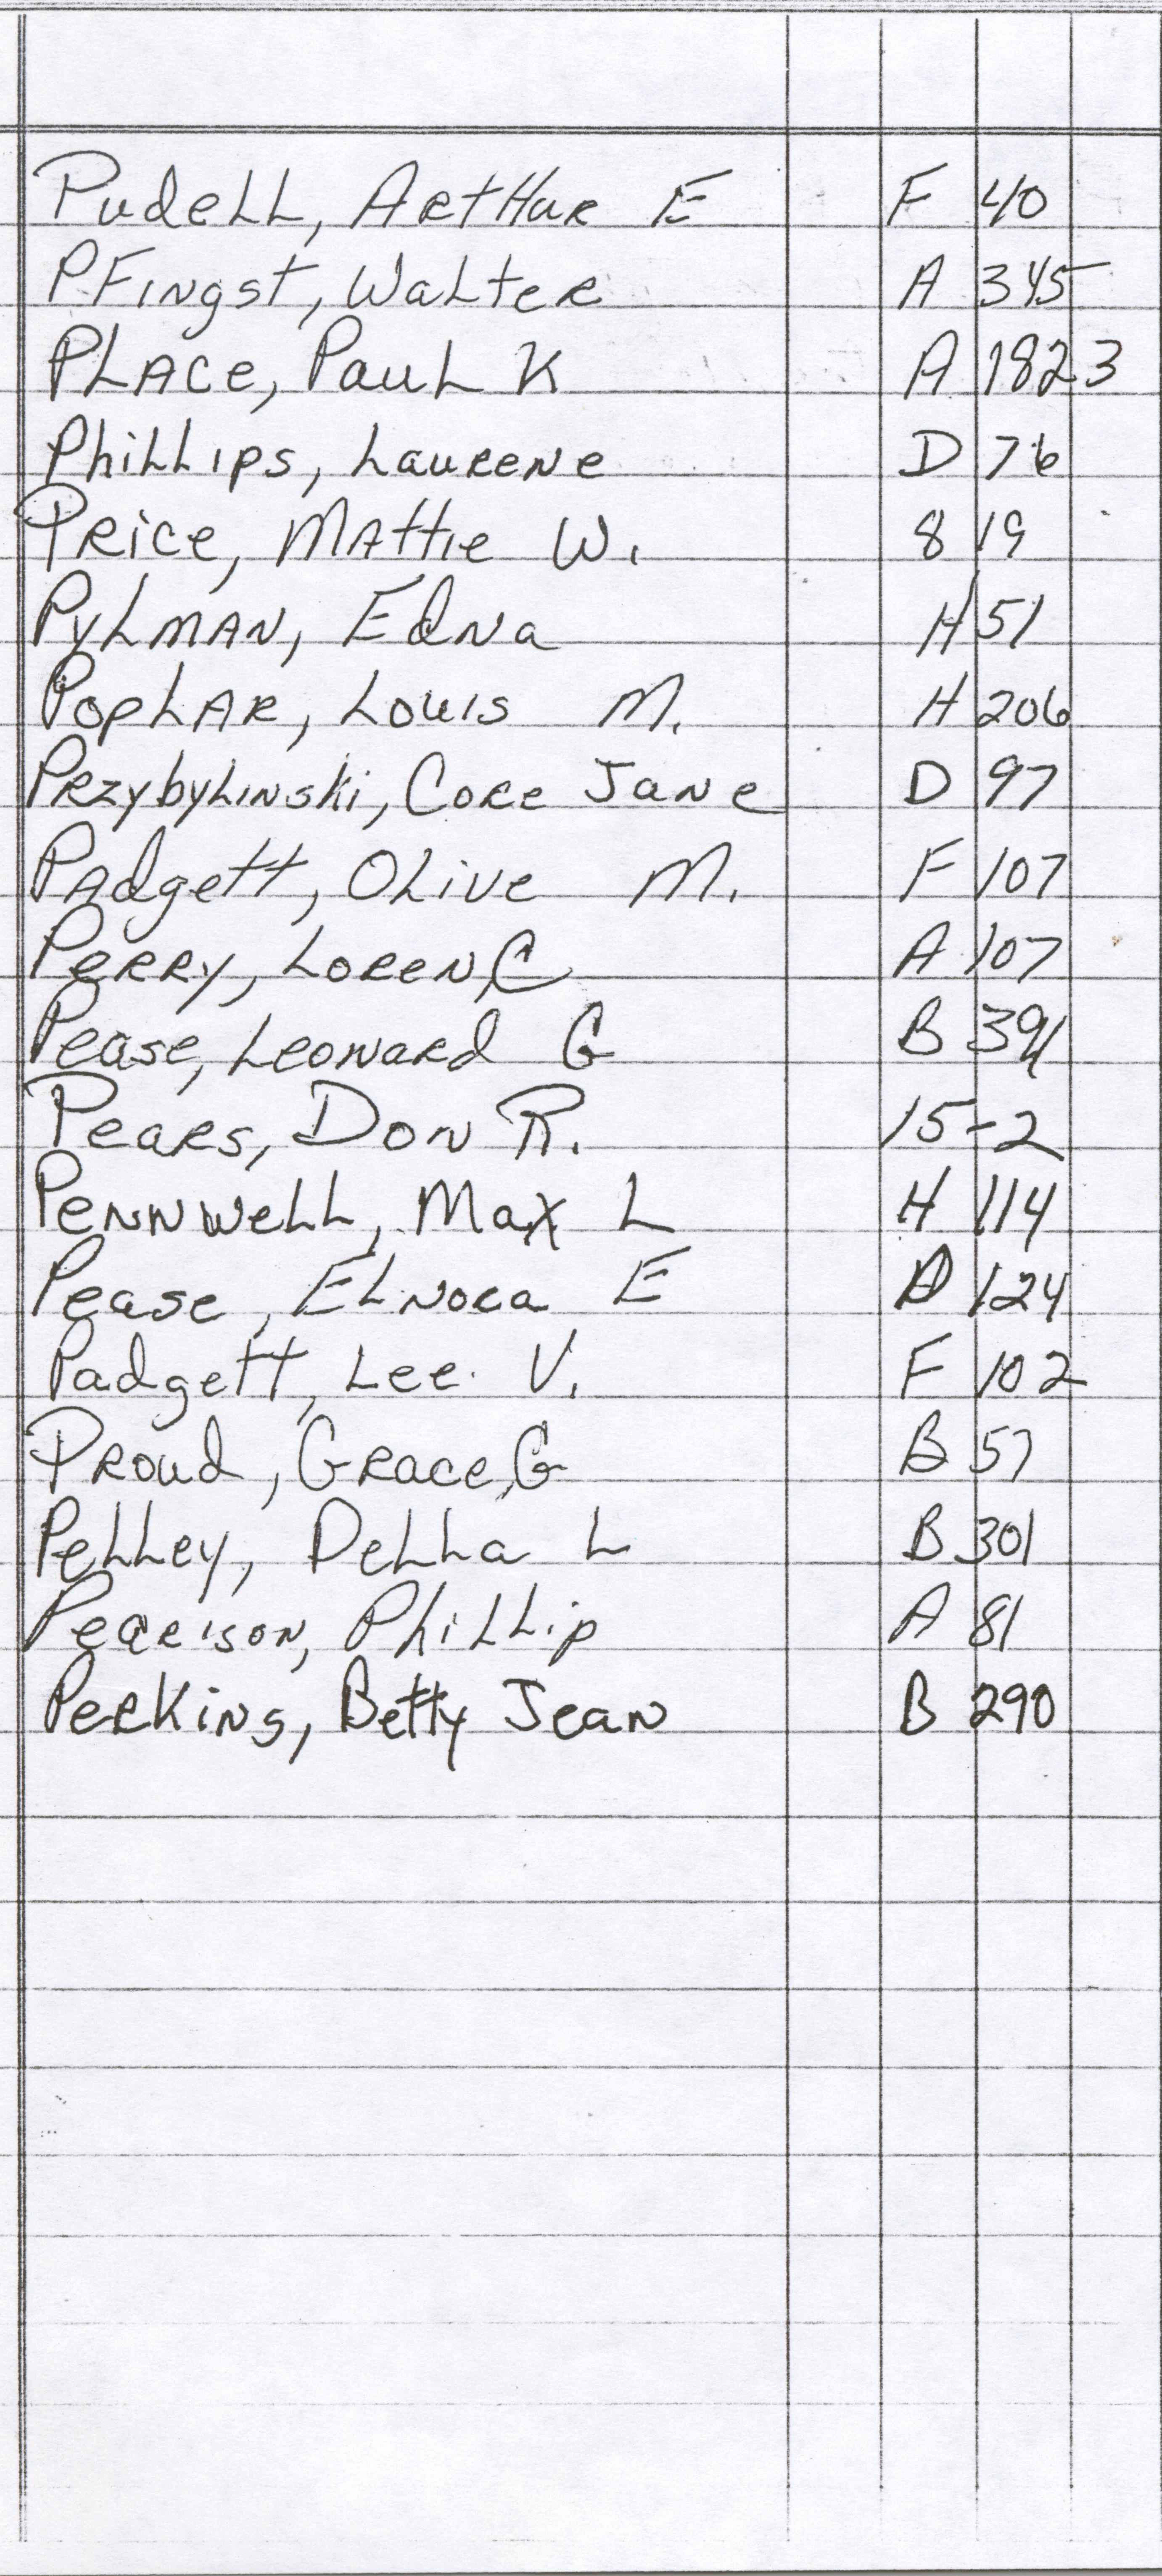 Pudell, Arthur E F 40
Pfingst, Walter A 345
Place, Paul K A 1823
Phillips, Laurene D 76
Price, Mattie W. 8 19
Pylman, Edna H 51
Poplar, Louis M. H 206
Przybylinski, Core Jane D 97
Padgett, Olive M. F 107
Perry, Loren, C A 107
Pease, Leonard G B
Pears, Don R. 15-2
Pennwell, Max L H 114
Pease, Elnora E 124
Padgett, Lee. V. F 102
Proud, Grace, G B 57
Pelley, Della L B 301
Pearison, Phillip A 81
Perking, Betty Jean B 290